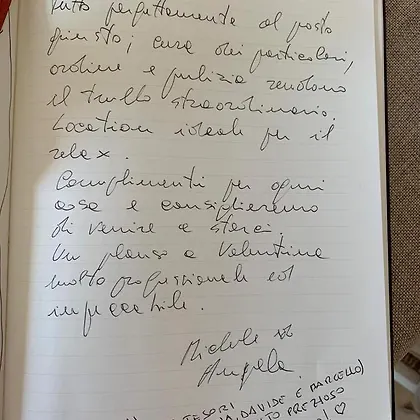 tutto perfettamente al posto
giusto; cura dei particolari,
ordine e pulizia rendono
il trullo straordinario.
Location ideale per il
relax.
Complimenti per ogni
cosa e consiglieremo
di venire a starci.
Un plauso a Valentina
molto professionale ed
impeccabile.
Michele
Angela
TESORI
DAVIDE E MARCELLO)
PREZIOSO